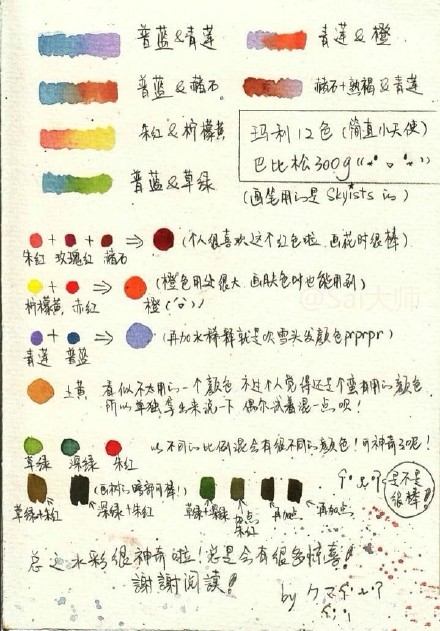 普蓝&青莲
青莲&橙
普蓝&赭石
赭石+熟褐&青莲
朱红&柠檬黄
玛利12色(简直小天使)
巴比松300g
普蓝&草绿
(画笔用的是Skyists的)
(个人很喜欢这个红色啦 画花时很棒)
朱红 玫瑰红 赭石
(橙色用处很大 画肤色时也能用到)
柠檬黄 赤红 橙
(再加水稀释就是吹雪头发颜色prprpr)
青莲 普蓝
土黄
看似不太用的一个颜色 不过个人觉得还是个蛮有用的颜色
所以单独拿出来说一下 偶尔试着混一点呗!
以不同的比例混会有很不同的颜色!可神奇了呢!
草绿 深绿 朱红
(画树的暗部可棒!)
是不是
很棒!!
草绿+朱红 深绿+朱红 草绿+深绿 加点朱红 再加点 再加点
总之水彩很神奇啦!总是会有很多惊喜!!
謝謝阅读!!
by
@Sai大师